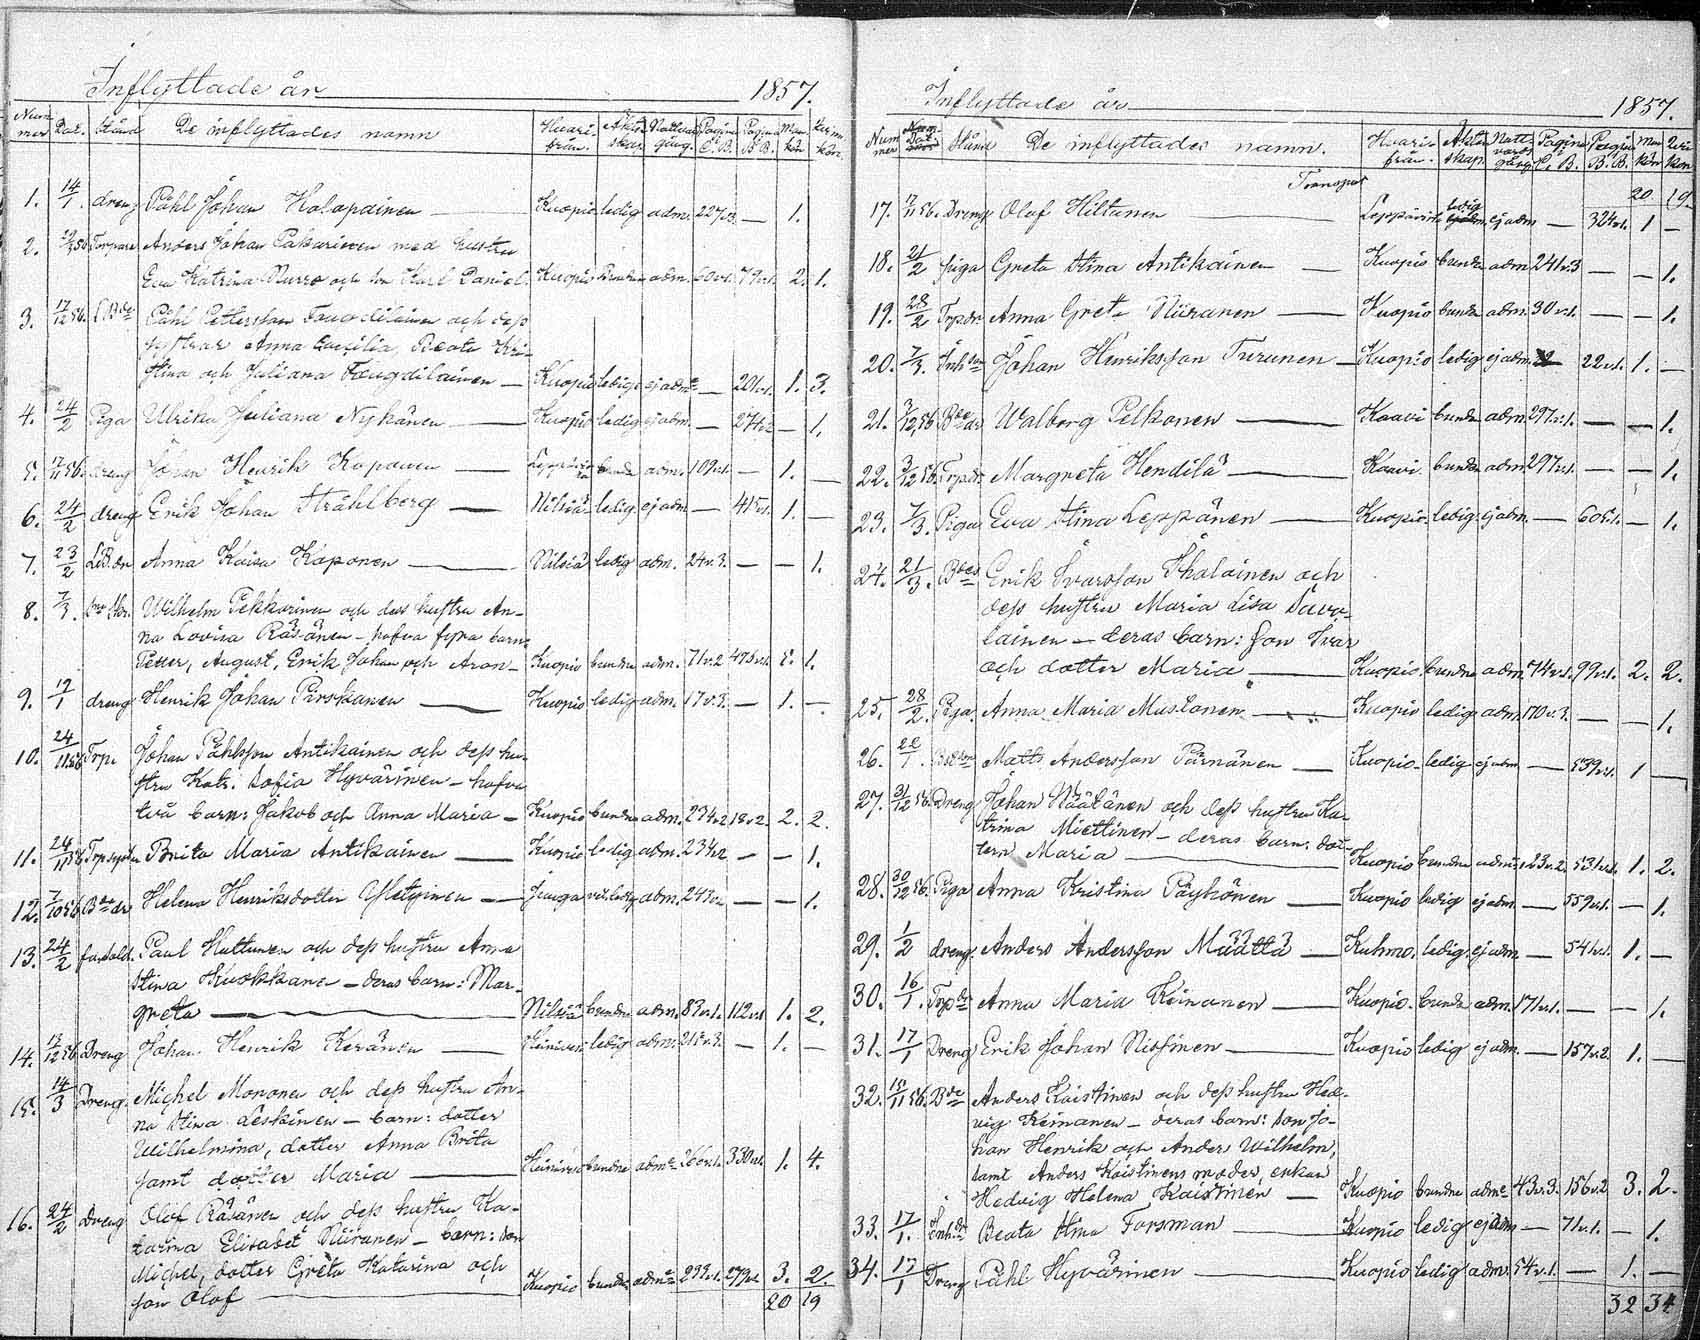 Inflyttade år 1857.
Num mer Dat. Stånd De inflyttades namn Hvari- från. Äkten- skap. Nattvards- gång. Pagina C. B. Pagina B. B. Man- kön kön.
1. 14/1. dreng Påhl Johan Holopainen — Kuopio ledig adm. 227 v.3. — 1.
2. Torpare Anders Johan Pakarinen med hustru
Eva Katrina Nurro och son Karl Daniel. Kuopio adm. 60 v.1. 79 v.1. 2. 1.
3. 17/12 56. Påhl Pettersson och dess
systrar Anna Caecilia, Beata Kri-
stina och Juliana — Kuopio ledige ej adme — 201 v.1. 1. 3.
4. 24/2 Piga Ulrika Juliana Nykänen — Kuopio ledig ej adm. — 274 v.2 — 1.
5. 17/11 56. dreng Johan Henrik Koponen — adm. 109 v.1. — 1. —
6. 24/2 dreng Erik Johan Stråhlberg — Nilsiä ledig ej adm. — 415 v.1. 1. —
7. 23/2 Anna Kaisa Koponen — Nilsiä ledig adm. 24 v.3. — — 1.
8. 7/3. Wilhelm Pekkarinen och dess hustru An-
na Lovisa Räsänen — hafva fyra barn:
Petter, August, Erik Johan och Aron — Kuopio bundne adm. 71 v.2 475 v.1. 5. 1.
9. 19/1 dreng Henrik Johan Pirskanen — Kuopio ledig adm. 17 v.3. — 1. —
10. 24/11 56 Torp. Johan Påhlsson Antikainen och dess hu-
stru Katr. Sofia Hyvärinen — hafva
två barn: Jakob och Anna Maria — Kuopio bundne adm. 234 v.2 18 v.2. 2. 2.
11. 24/11 56 Brita Maria Antikainen — Kuopio ledig adm. 234 v.2 — — 1.
12. 7/10 56 Helena Henriksdotter — adm. 243 v.2 — — 1.
13. 24/2 Paul Huttunen och dess hustru Anna
Stina — deras barn: Mar-
greta — Nilsiä bundne adm. 83 v.1. 112 v.1 1. 2.
14. 17/12 56 Dreng Johan Henrik Keränen — ledig adm. 215 v.3. — 1. —
15. 14/3 Dreng. Michel Mononen och dess hustru An-
na Stina Leskinen — barn: dotter
Wilhelmina, dotter Anna Brita
samt dotter Maria — bundne adme 266 v.1. 330 v.1. 1. 4.
16. 24/2 Dreng Olof Räsänen och dess hustru Ka-
tarina Elisabet Niiranen — barn: son
Michel, dotter Greta Katarina och
son Olof — Kuopio bundne adme 299 v.1. 279 v.1. 3. 2.
20 19
Inflyttade år 1857.
Num mer Dat. Stånd De inflyttades namn. Hvari- från. Äkten- skap. Natt- vards- gång Pagina C. B. Pagina B. B. Man kön Qvin kön
Transport 20 19.
17. 17/11 56. Dreng Olof Hiltunen — ledig ej adm — 324 v.1. 1 —
18. 21/2 piga Greta Stina Antikainen — Kuopio bunden adm. 241 v.3 — — 1.
19. 28/2 Anna Greta Niiranen — Kuopio bunden adm. 30 v.1. — — 1.
20. 7/3. Inh son Johan Henriksson Turunen — Kuopio ledig ej adm. 22 v.1. 1. —
21. 3/12 56 Walborg Pelkonen — Kaavi bunden adm. 297 v.1. — — 1.
22. 3/12 56. Margreta Hendilä — Kaavi bunden adm. 297 v.1. — — 1.
23. 7/3. Piga Eva Stina Leppänen — Kuopio. ledig. ej adm. — 605 v.1. — 1.
24. 21/3. Erik Ivarsson och
dess hustru Maria Lisa Savo-
lainen — deras barn: son Ivar
och dotter Maria — Kuopio bundne adm. 74 v.1. 99 v.1. 2. 2.
25. 28/2. Piga Anna Maria Mustonen — Kuopio ledig adm. 170 v.3. — — 1.
26. 22/1. Matts Andersson Pärnänen — Kuopio. ledig ej adm — 539 v.1. 1 —
27. 31/12 56. Dreng Johan Väätänen och dess hustru Ka-
trina Miettinen — deras barn: dot-
tern Maria — Kuopio bundne adme 123 v.2. 531 v.1. 1. 2.
28. 30/12 56. Piga Anna Kristina Pöyhönen — Kuopio ledig ej adm. — 559 v.1. — 1.
29. 1/2 dreng. Anders Andersson Määttä — Kuhmo. ledig. ej adm. — 54 v.1. 1. —
30. 16/1. Anna Maria Keinanen — Kuopio. bunde adm. 171 v.1. — — 1.
31. 17/1 Dreng Erik Johan Nissinen — Kuopio ledig ej adm. — 157 v.2. 1. —
32. 15/11 56. Anders Kaistinen och dess hustru Hed-
vig Keinanen — deras barn: son Jo-
han Henrik och Ander Wilhelm,
samt Anders Kaistinens moder, enkan
Hedvig Helena Kaistinen — Kuopio bundne adme 43 v.3. 156 v.2 3. 2.
33. 17/1. Beata Stina Forsman — Kuopio ledig ej adm — 71 v.1. — 1.
34. 17/1 Dreng Påhl Hyvärinen — Kuopio ledig adm. 54 v.1. — 1. —
32 34